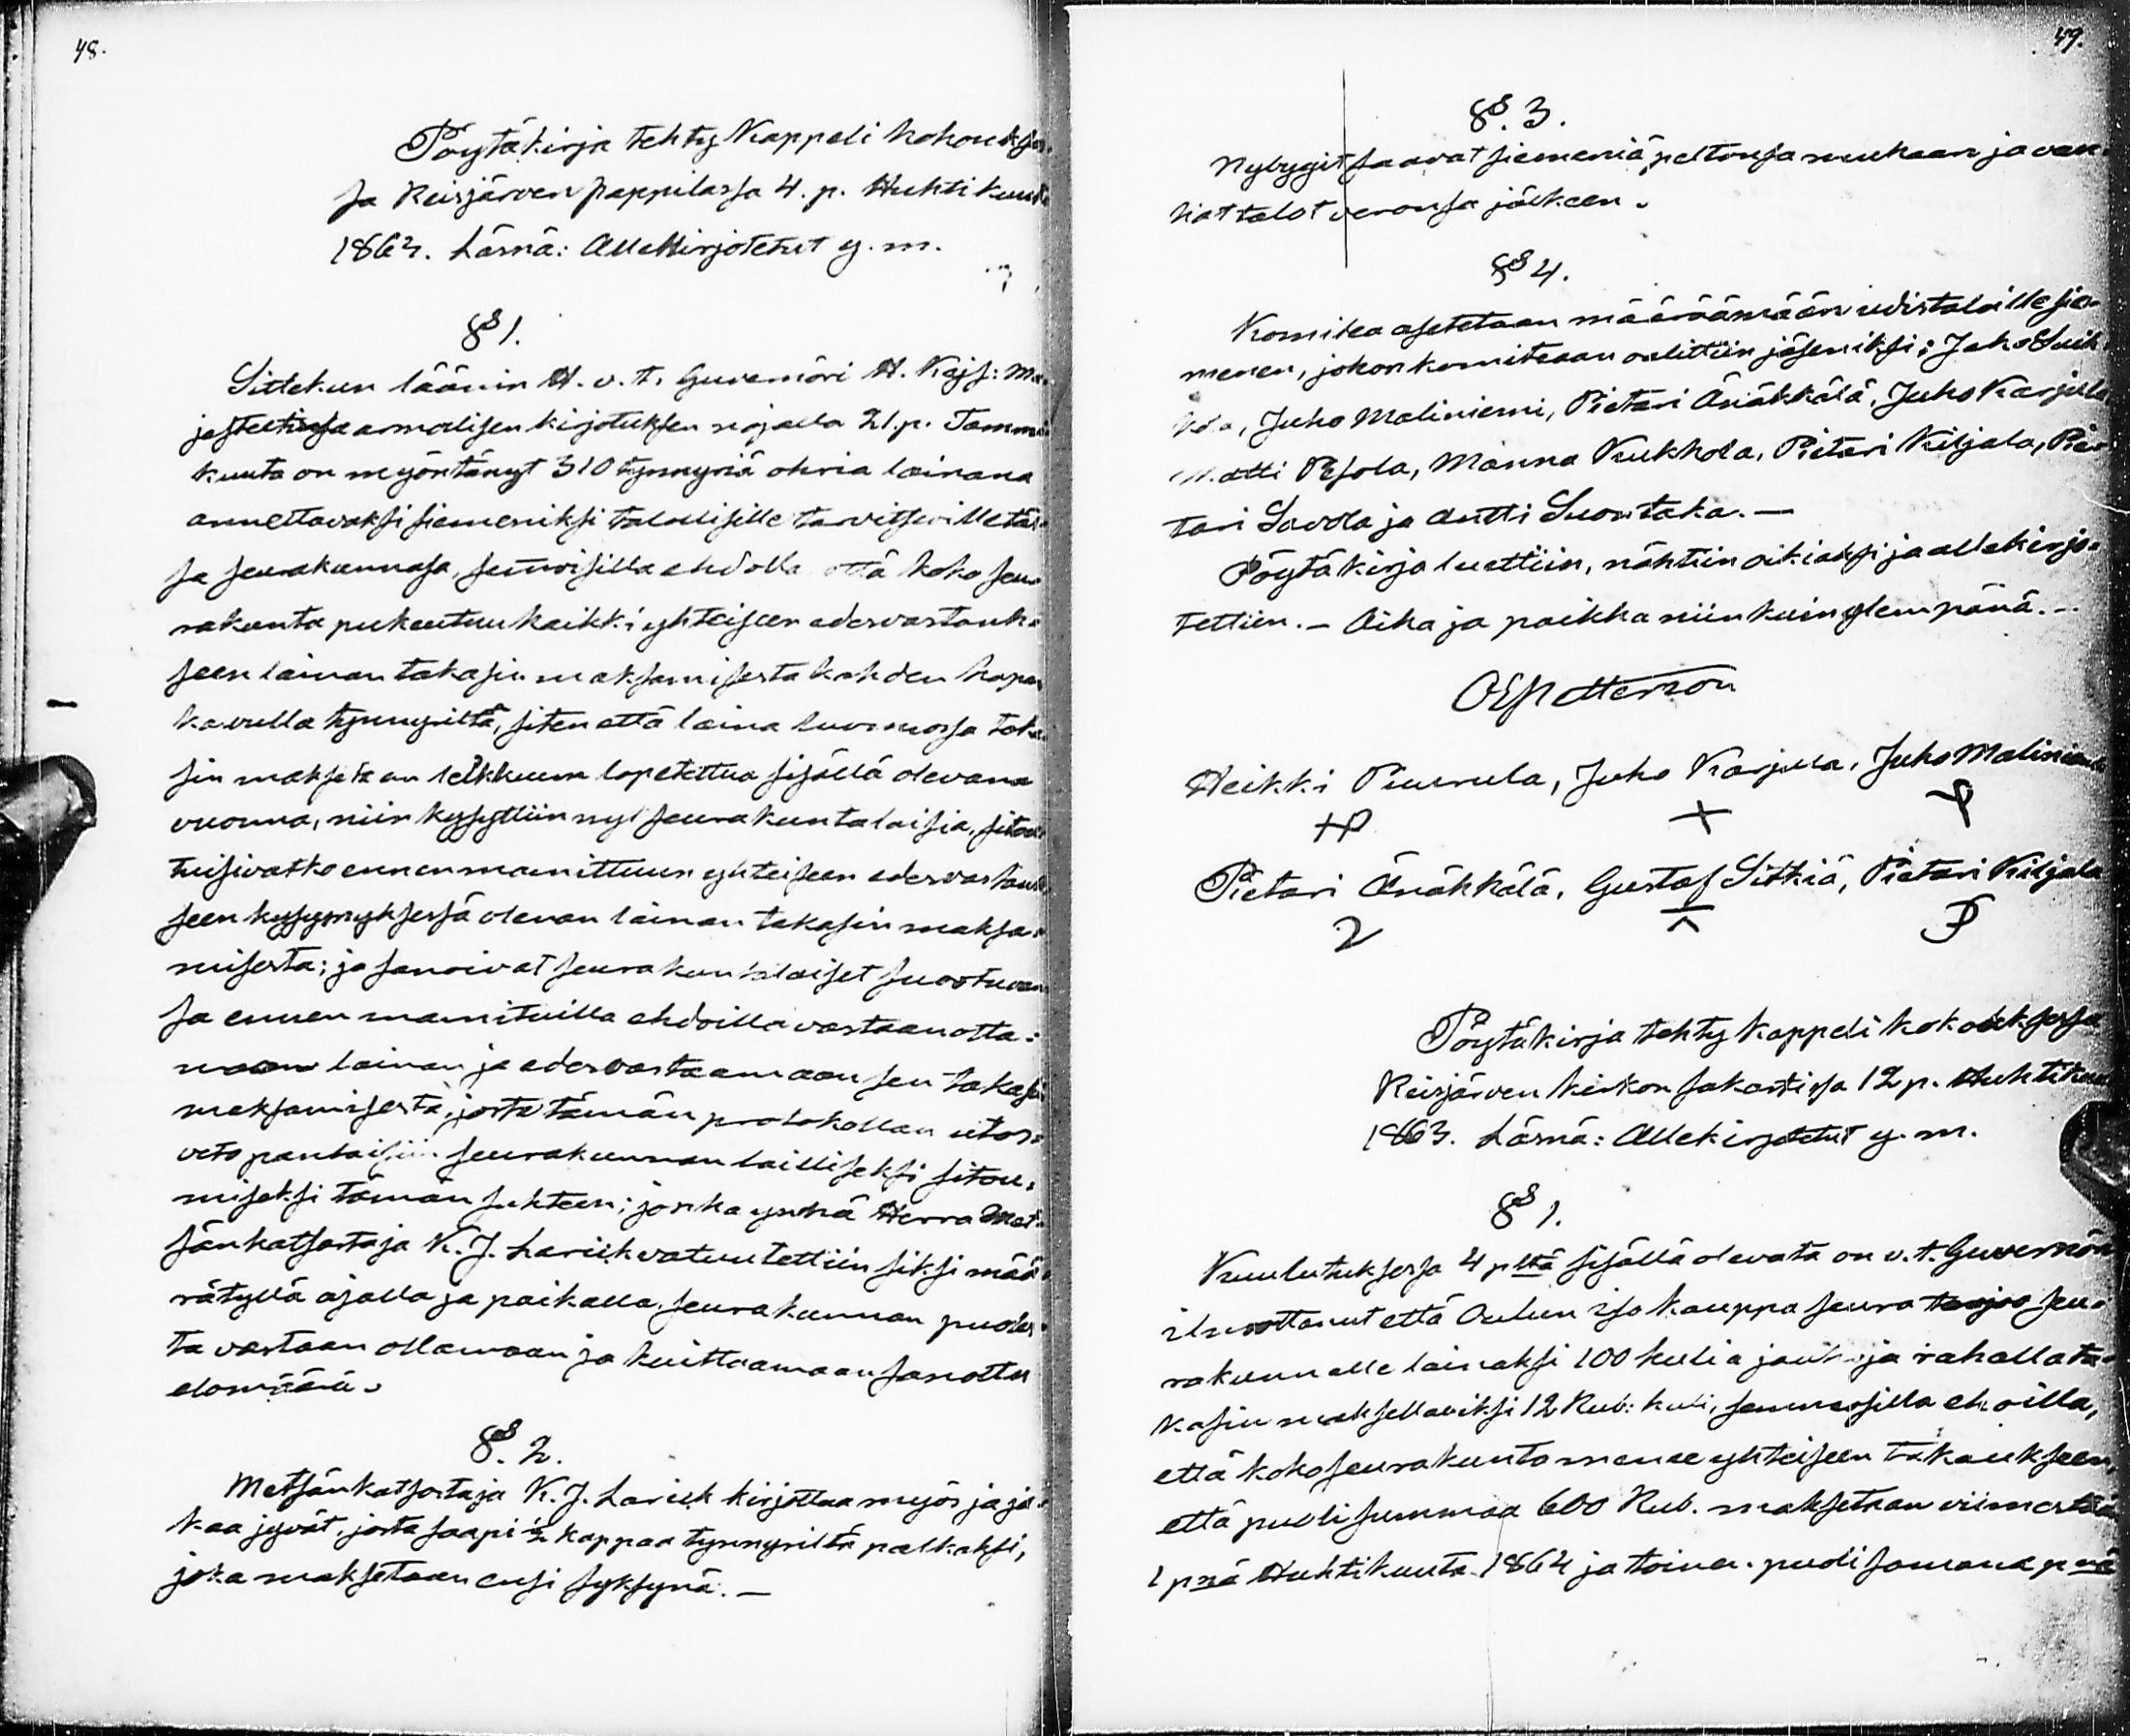 48.
Pöytäkirja tehty Kappeli kokoukses-
sa Reisjärven pappilassa 4. p. Huhtikuuta
1863. Läsnä: Allekirjotetut y. m.
§ 1.
Sittekun läänin H. v. t. Guvernöri H. Kejs: Ma-
jesteetinsa armollisen kirjotuksen nojalla 21.p. Tammi
kuuta on myöntänyt 310 tynnyriä ohria lainana
annettavaksi siemeniksi talollisille tarvitseville täs-
sä seurakunnasa, semoisilla ehdolla että koko seu-
rakunta pukeutuu kaikki yhteiseen edesvastauk-
seen lainan takasin maksamisesta kahden kapan
kasvulla tynnyriltä, siten että laina luonnossa taka-
sin maksetaan leikkuun lopetettua sisällä olevana
vuonna, niin kysyttiin nyt seurakuntalaisia, sitou-
tuisivatko ennenmainittuun yhteiseen edesvastauk-
seen kysymyksessä olevan lainan takasin maksa-
misesta; ja sanoivat seurakuntalaiset suostuvan-
sa ennen mainituilla ehdoilla vastaanotta-
maan lainan ja edesvastaamaan sen takasin
maksamisesta, josta tämän protokollan ulos-
veto pantaisiin seurakunnan lailliseksi sitou-
miseksi tämän suhteen; jonka ynnä Herra Met-
sänkatsastaja K. J. Lariek vatuutettiin siksi mää-
rätyllä ajalla ja paikalla seurakunnan puoles-
ta vastaan ottamaan ja kuittaamaan sanottu
elomäärä.
§. 2.
Metsänkatsastaja K. J. Lariek kirjottaa myös ja ja-
kaa jyvät, josta saapi ½ kappaa tynnyriltä palkaksi,
joka maksetaan ensi syksynä. —
49.
§. 3.
Nybygit saavat siemeniä peltonsa mukaan ja van-
hat talot veronsa jälkeen.
§ 4.
Komitea asetetaan määräämään udistaloille sie-
menen, johon komiteaan valittiin jäseniksi: Jaho
Juho Maliniemi, Pietari Änäkkälä, Juho Karjula
Matti Pesola, Manna Kukkola, Pietari Kiljala, Pie-
tari Savola ja Antti Suontaka. —
Pöytäkirja luettiin, nähtiin oikiaksi ja allekirjo-
tettiin. — Aika ja paikka niinkuin ylempänä. —
Heikki Puurula, Juho Karjula, Juho Maliniemi
Pietari Änäkkälä, Gustaf Sitkiä, Pietari Kiljala
Pöytäkirja tehty kappeli kokouksessa
Reisjärven kirkon sakastissa 12 p. Huhtikuuta
1863. Läsnä: Allekirjotetut y. m.
§ 1.
Kuulutuksessa 4 pltä sisällä olevata on v. t. Guvernöri
ilmottanut että Oulun iso kauppa seura tarjoo seu-
rakunnalle lainaksi 100 kulia jauhoja rahalla ta-
kasin maksettaviksi 12 Rub: kuli, semmosilla ehoilla,
että koko seurakunta menee yhteiseen takaukseen,
että puoli summaa 600 Rub. maksetaan viimestään
1 pnä Huhtikuuta 1864 ja toinen puoli samana pnä